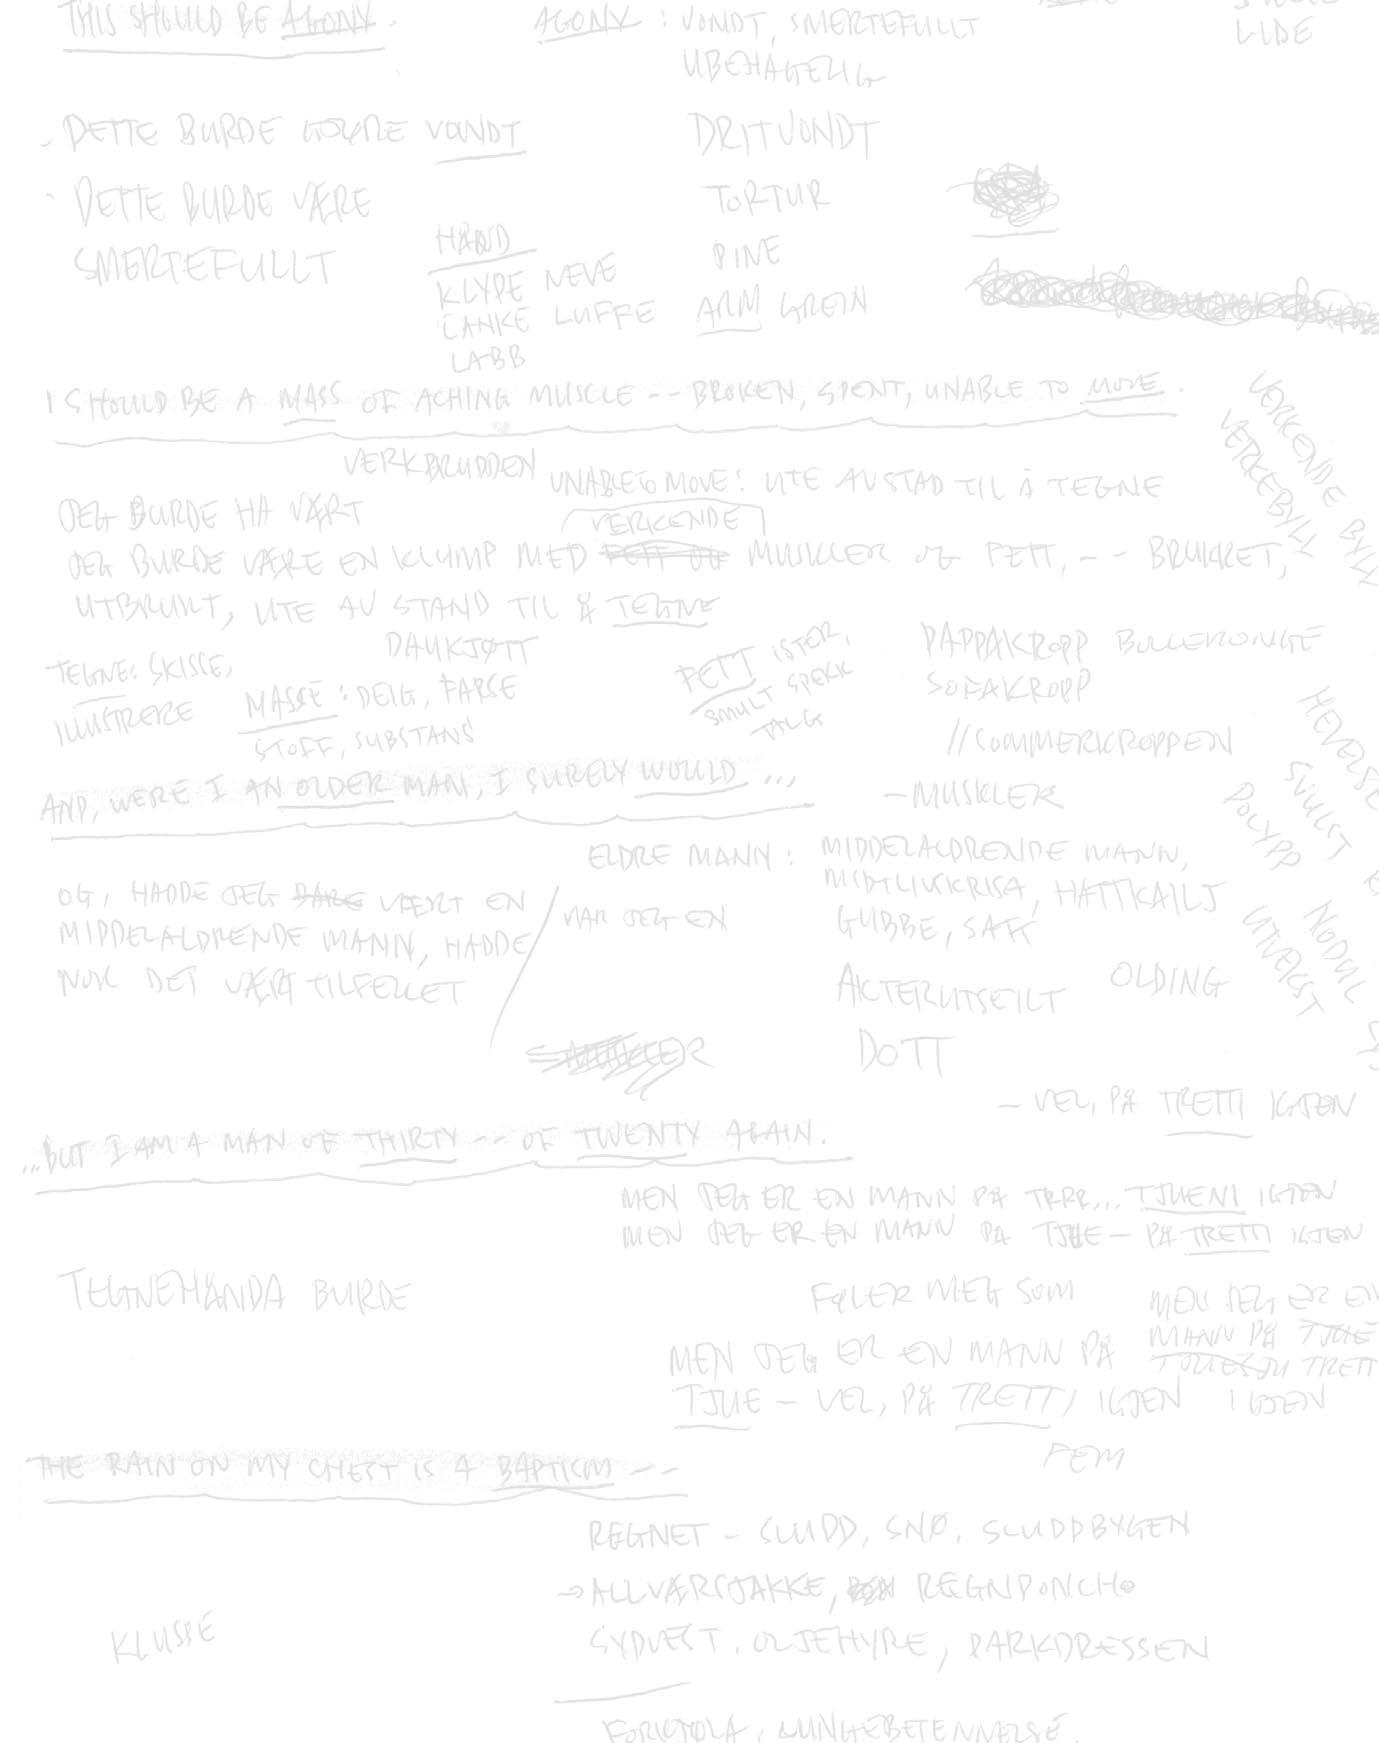 THIS SHOULD BE AGONY.
AGONY : VONDT, SMERTEFULLT
UBEHAGELIG
LIDE
DETTE BURDE GJØRE VONDT
DRITVONDT
DETTE BURDE VÆRE
SMERTEFULLT
TORTUR
PINE
HÅND
KLYPE NEVE
LANKE LUFFE
LABB
ARM GREIN
I SHOULD BE A MASS OF ACHING MUSCLE -- BROKEN, SPENT, UNABLE TO MOVE.
VERKENDE BYLL
VERKEBYLL
VERKBRUDDEN
UNABLE TO MOVE: UTE AV STAD TIL Å TEGNE
JEG BURDE HA VÆRT
VERKENDE
JEG BURDE VÆRE EN KLUMP MED FETT OG MUSKLER OG FETT, -- BRUKKET,
UTBRUKT, UTE AV STAND TIL Å TEGNE
DAUKJØTT
TEGNE: SKISSE,
ILLUSTRERE
MASSE : DEIG, FARSE
STOFF, SUBSTANS
FETT ISTER,
SMULT SPEKK
TALG
PAPPAKROPP BOLLEMONGE
SOFAKROPP
//SOMMERKROPPEN
- MUSKLER
HEVELSE
SVULST
POLYPP
AND, WERE I AN OLDER MAN, I SURELY WOULD ...
ELDRE MANN : MIDDELALDRENDE MANN,
MIDTLIVSKRISA,
GUBBE,
OG, HADDE JEG BARE VÆRT EN
MIDDELALDRENDE MANN, HADDE
NOK DET VÆRT TILFELLET
VAR JEG EN
AKTERUTSEILT OLDING
DOTT
NODUL
UTVEKST
MUSKLER
- VEL, PÅ TRETTI IGJEN
...BUT I AM A MAN OF THIRTY -- OF TWENTY AGAIN.
MEN JEG ER EN MANN PÅ TRRR... TJUENI IGJEN
MEN JEG ER EN MANN PÅ TJUE - PÅ TRETTI IGJEN
TEGNEHÅNDA BURDE
FØLER MEG SOM
MEN JEG ER EN MANN PÅ
TJUE - VEL, PÅ TRETTI IGJEN
MEN JEG ER EN
MANN PÅ TJUE
IGJEN
FEM
THE RAIN ON MY CHEST IS A BAPTISM --
REGNET - SLUDD, SNØ, SLUDDBYGEN
→ ALLVÆRSJAKKE, REGNPONCHO
SYDVEST, OLJEHYRE, PARKDRESSEN
KLUSSE
FORKJØLA, LUNGEBETENNELSE.